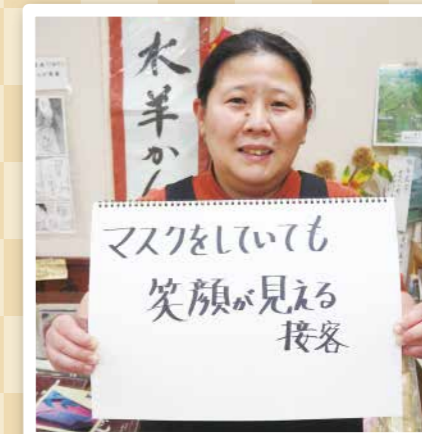 水羊かん
マスクをしていても
笑顔が見える
接客